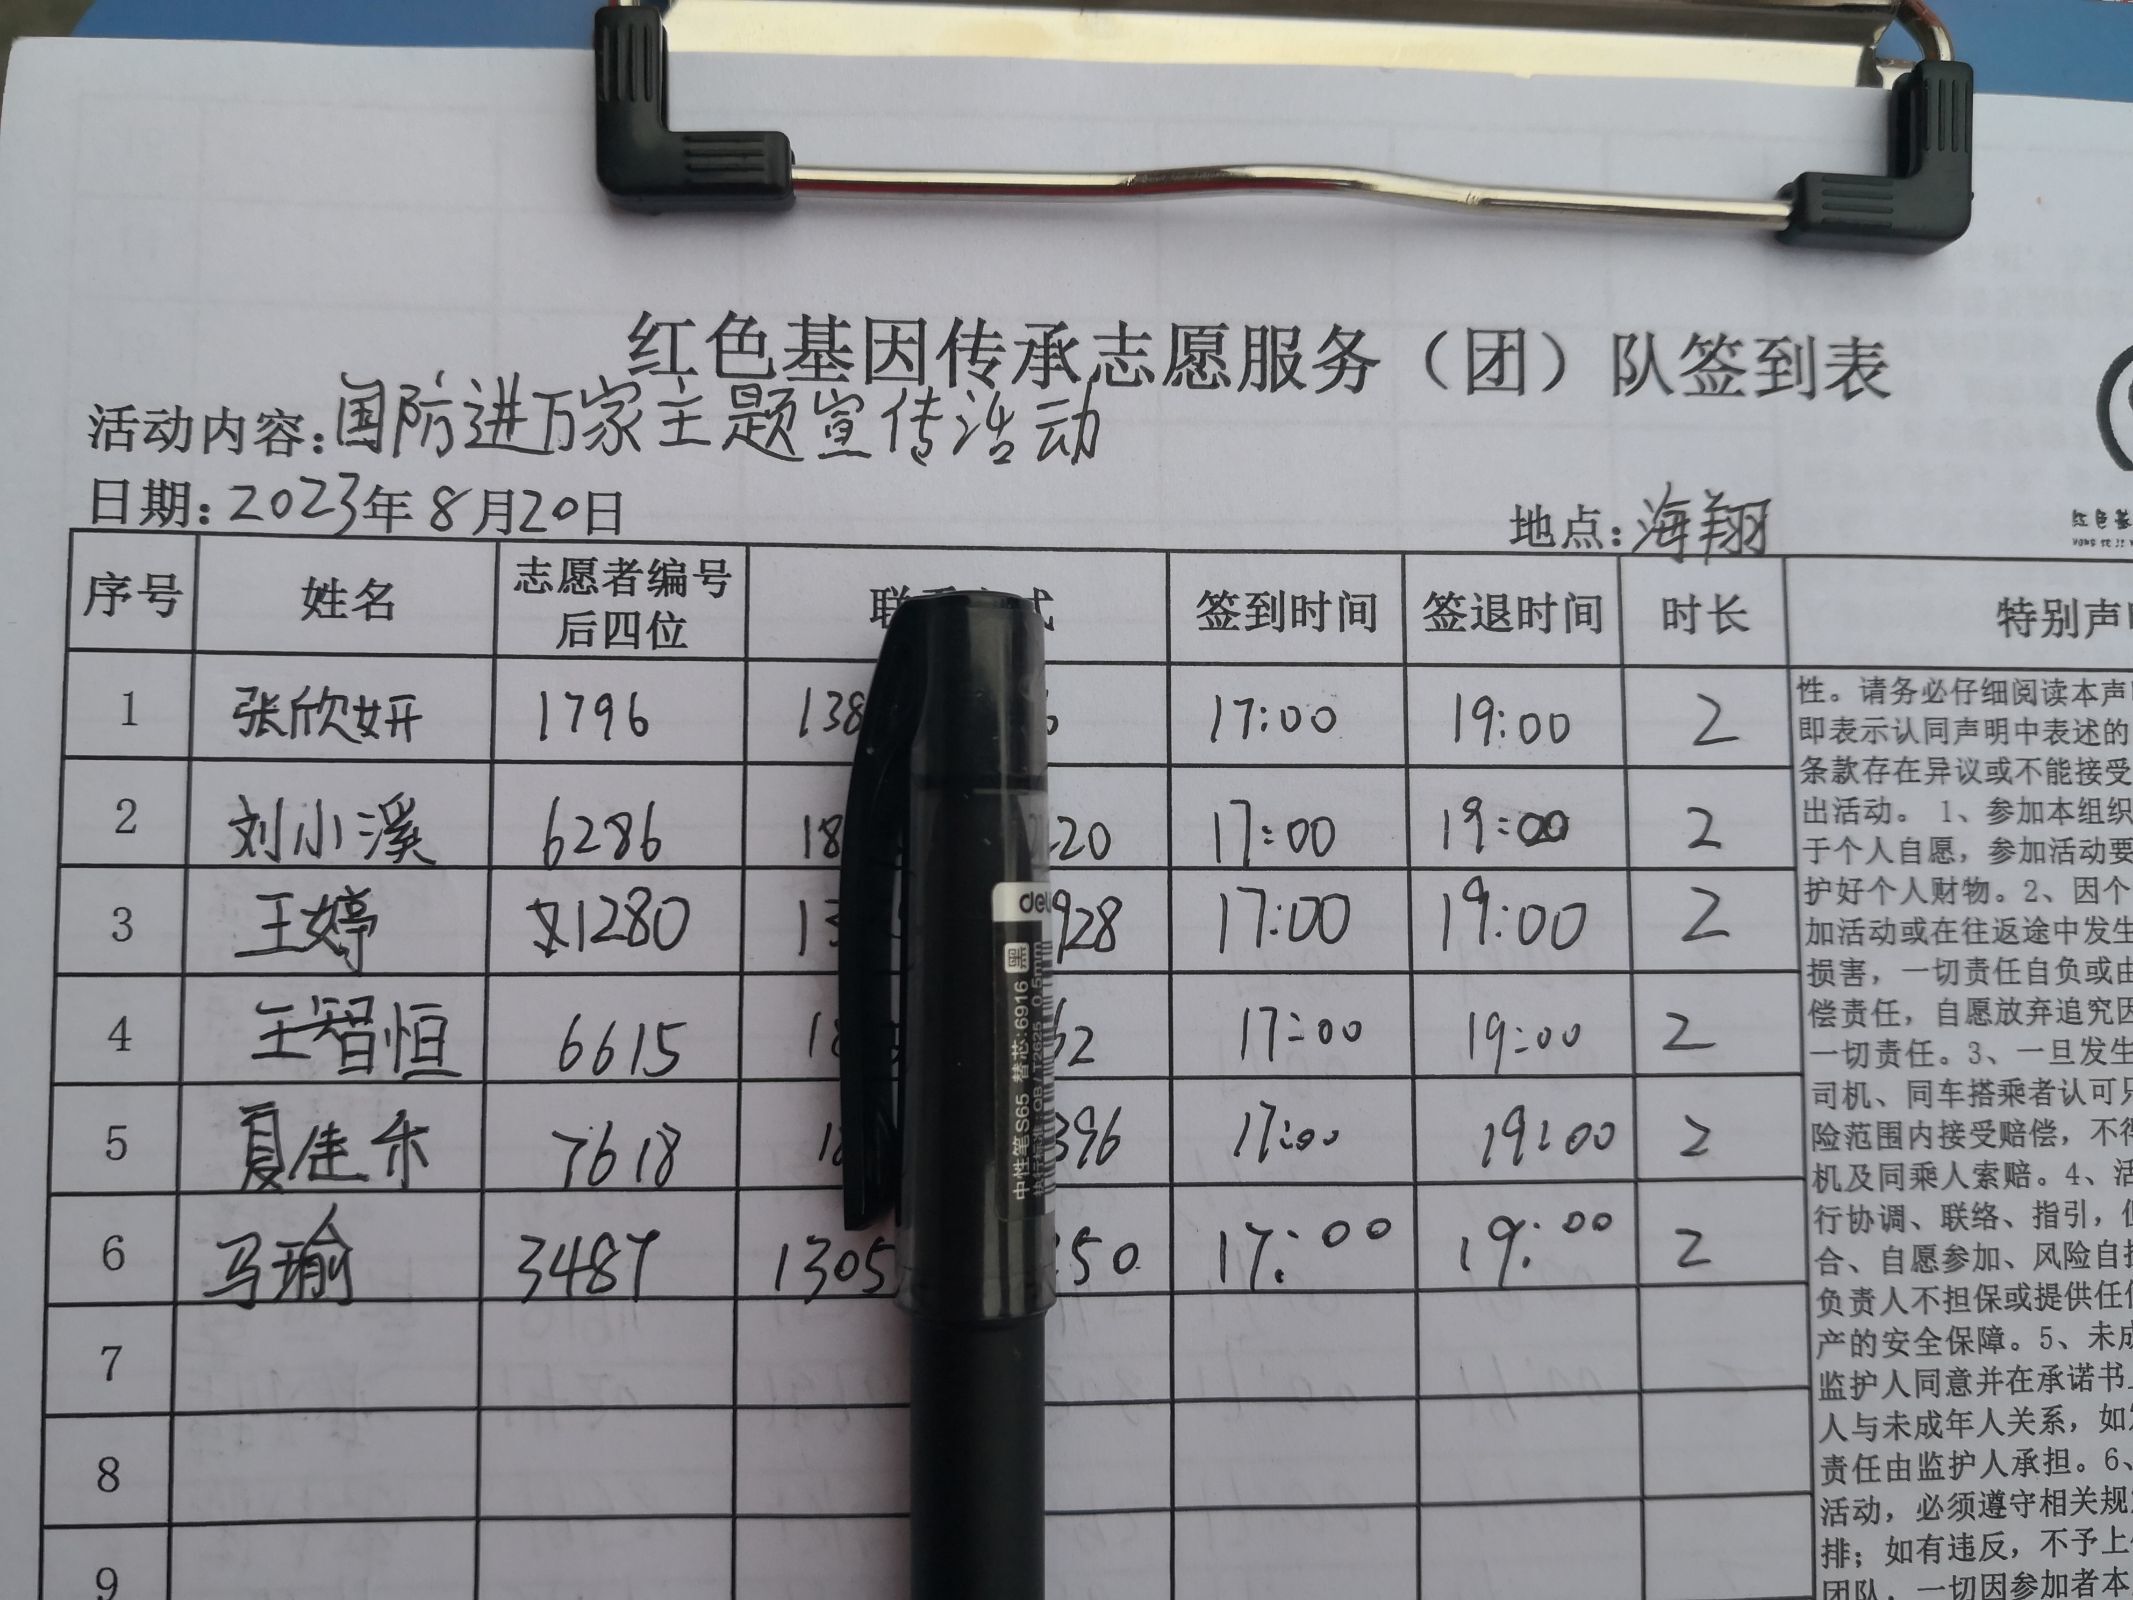 红色基因传承志愿服务（团）队签到表
活动内容：国防进万家主题宣传活动
日期：2023年8月20日 地点：海翔
序号 姓名 志愿者编号后四位 签到时间 签退时间 时长 特别声
1 张欣妍 1796 138 17:00 19:00 2
2 刘小溪 6286 18 220 17:00 19:00 2
3 王婷 1280 13 928 17:00 19:00 2
4 王智恒 6615 18 62 17:00 19:00 2
5 夏佳乐 7618 18 396 17:00 19:00 2
6 马瑜 3487 1305 250 17:00 19:00 2
7
8
9
性。请务必仔细阅读本声
即表示认同声明中表述的
条款存在异议或不能接受
出活动。1、参加本组织
于个人自愿，参加活动要
护好个人财物。2、因个
加活动或在往返途中发生
损害，一切责任自负或由
偿责任，自愿放弃追究因
一切责任。3、一旦发生
司机、同车搭乘者认可只
险范围内接受赔偿，不得
机及同乘人索赔。4、活
行协调、联络、指引，但
合、自愿参加、风险自担
负责人不担保或提供任何
产的安全保障。5、未成
监护人同意并在承诺书上
人与未成年人关系，如
责任由监护人承担。6、
活动，必须遵守相关规
排；如有违反，不予上
团队，一切因参加者本
红色基
deli
中性笔S65 替芯:6916 黑
执行标准:QB/T2625 0.5mm